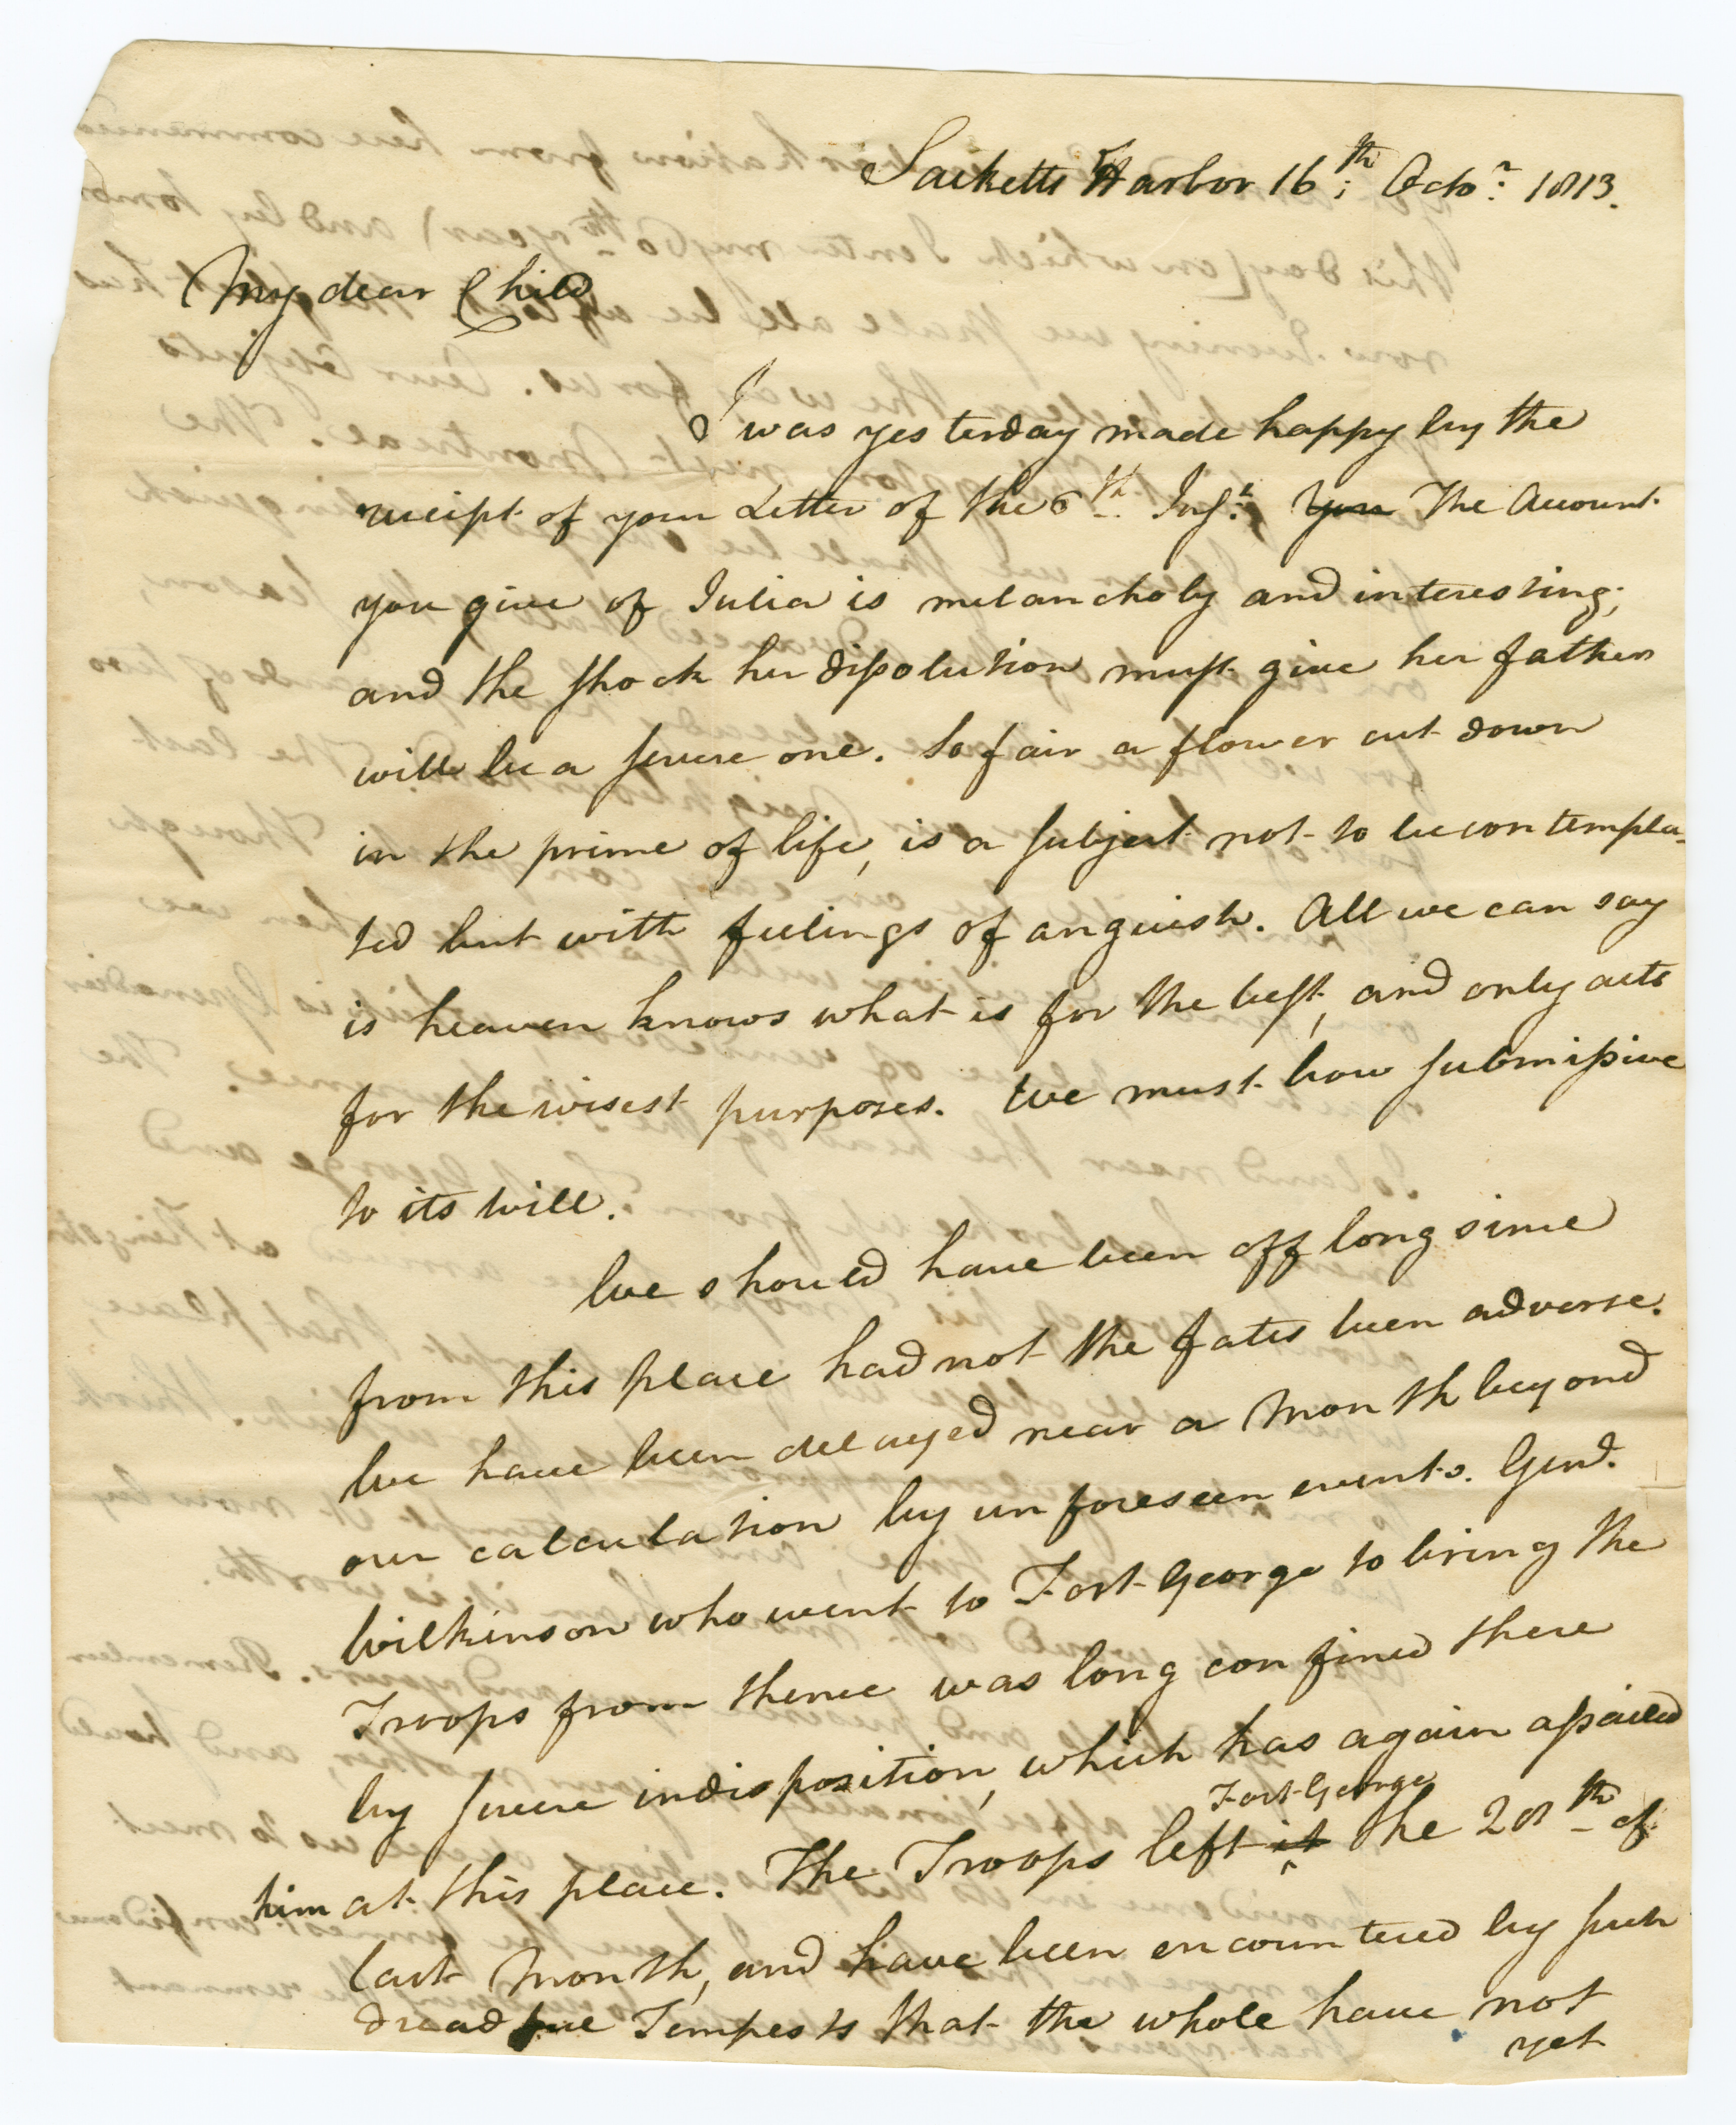 Sacketts Harbor 16th; Octor: 1813.
My dear Child
I was yesterday made happy by the
receipt of your Letter of the 6th Inst: You The Account
you give of Julia is melancholy and interesting;
and the shock her dissolution must give her father
will be a severe one. So fair a flower cut down
in the prime of life, is a subject not to be contempla-
ted but with feelings of anguish. All we can say
is heaven knows what is for the best, and only acts
for the wisest purposes. We must bow submissive
to its will.
We should have been off long since
from this place had not the fates been adverse.
We have been delayed near a Month beyond
our calculation by unforeseen events. Genl.
Wilkinson who went to Fort George to bring the
Troops from thence was long confined there
by severe indisposition, which has again assailed
him at this place. The Troops left it Fort George the 28th of
last Month, and have been encountered by such
dreadful Tempests that the whole have not
yet